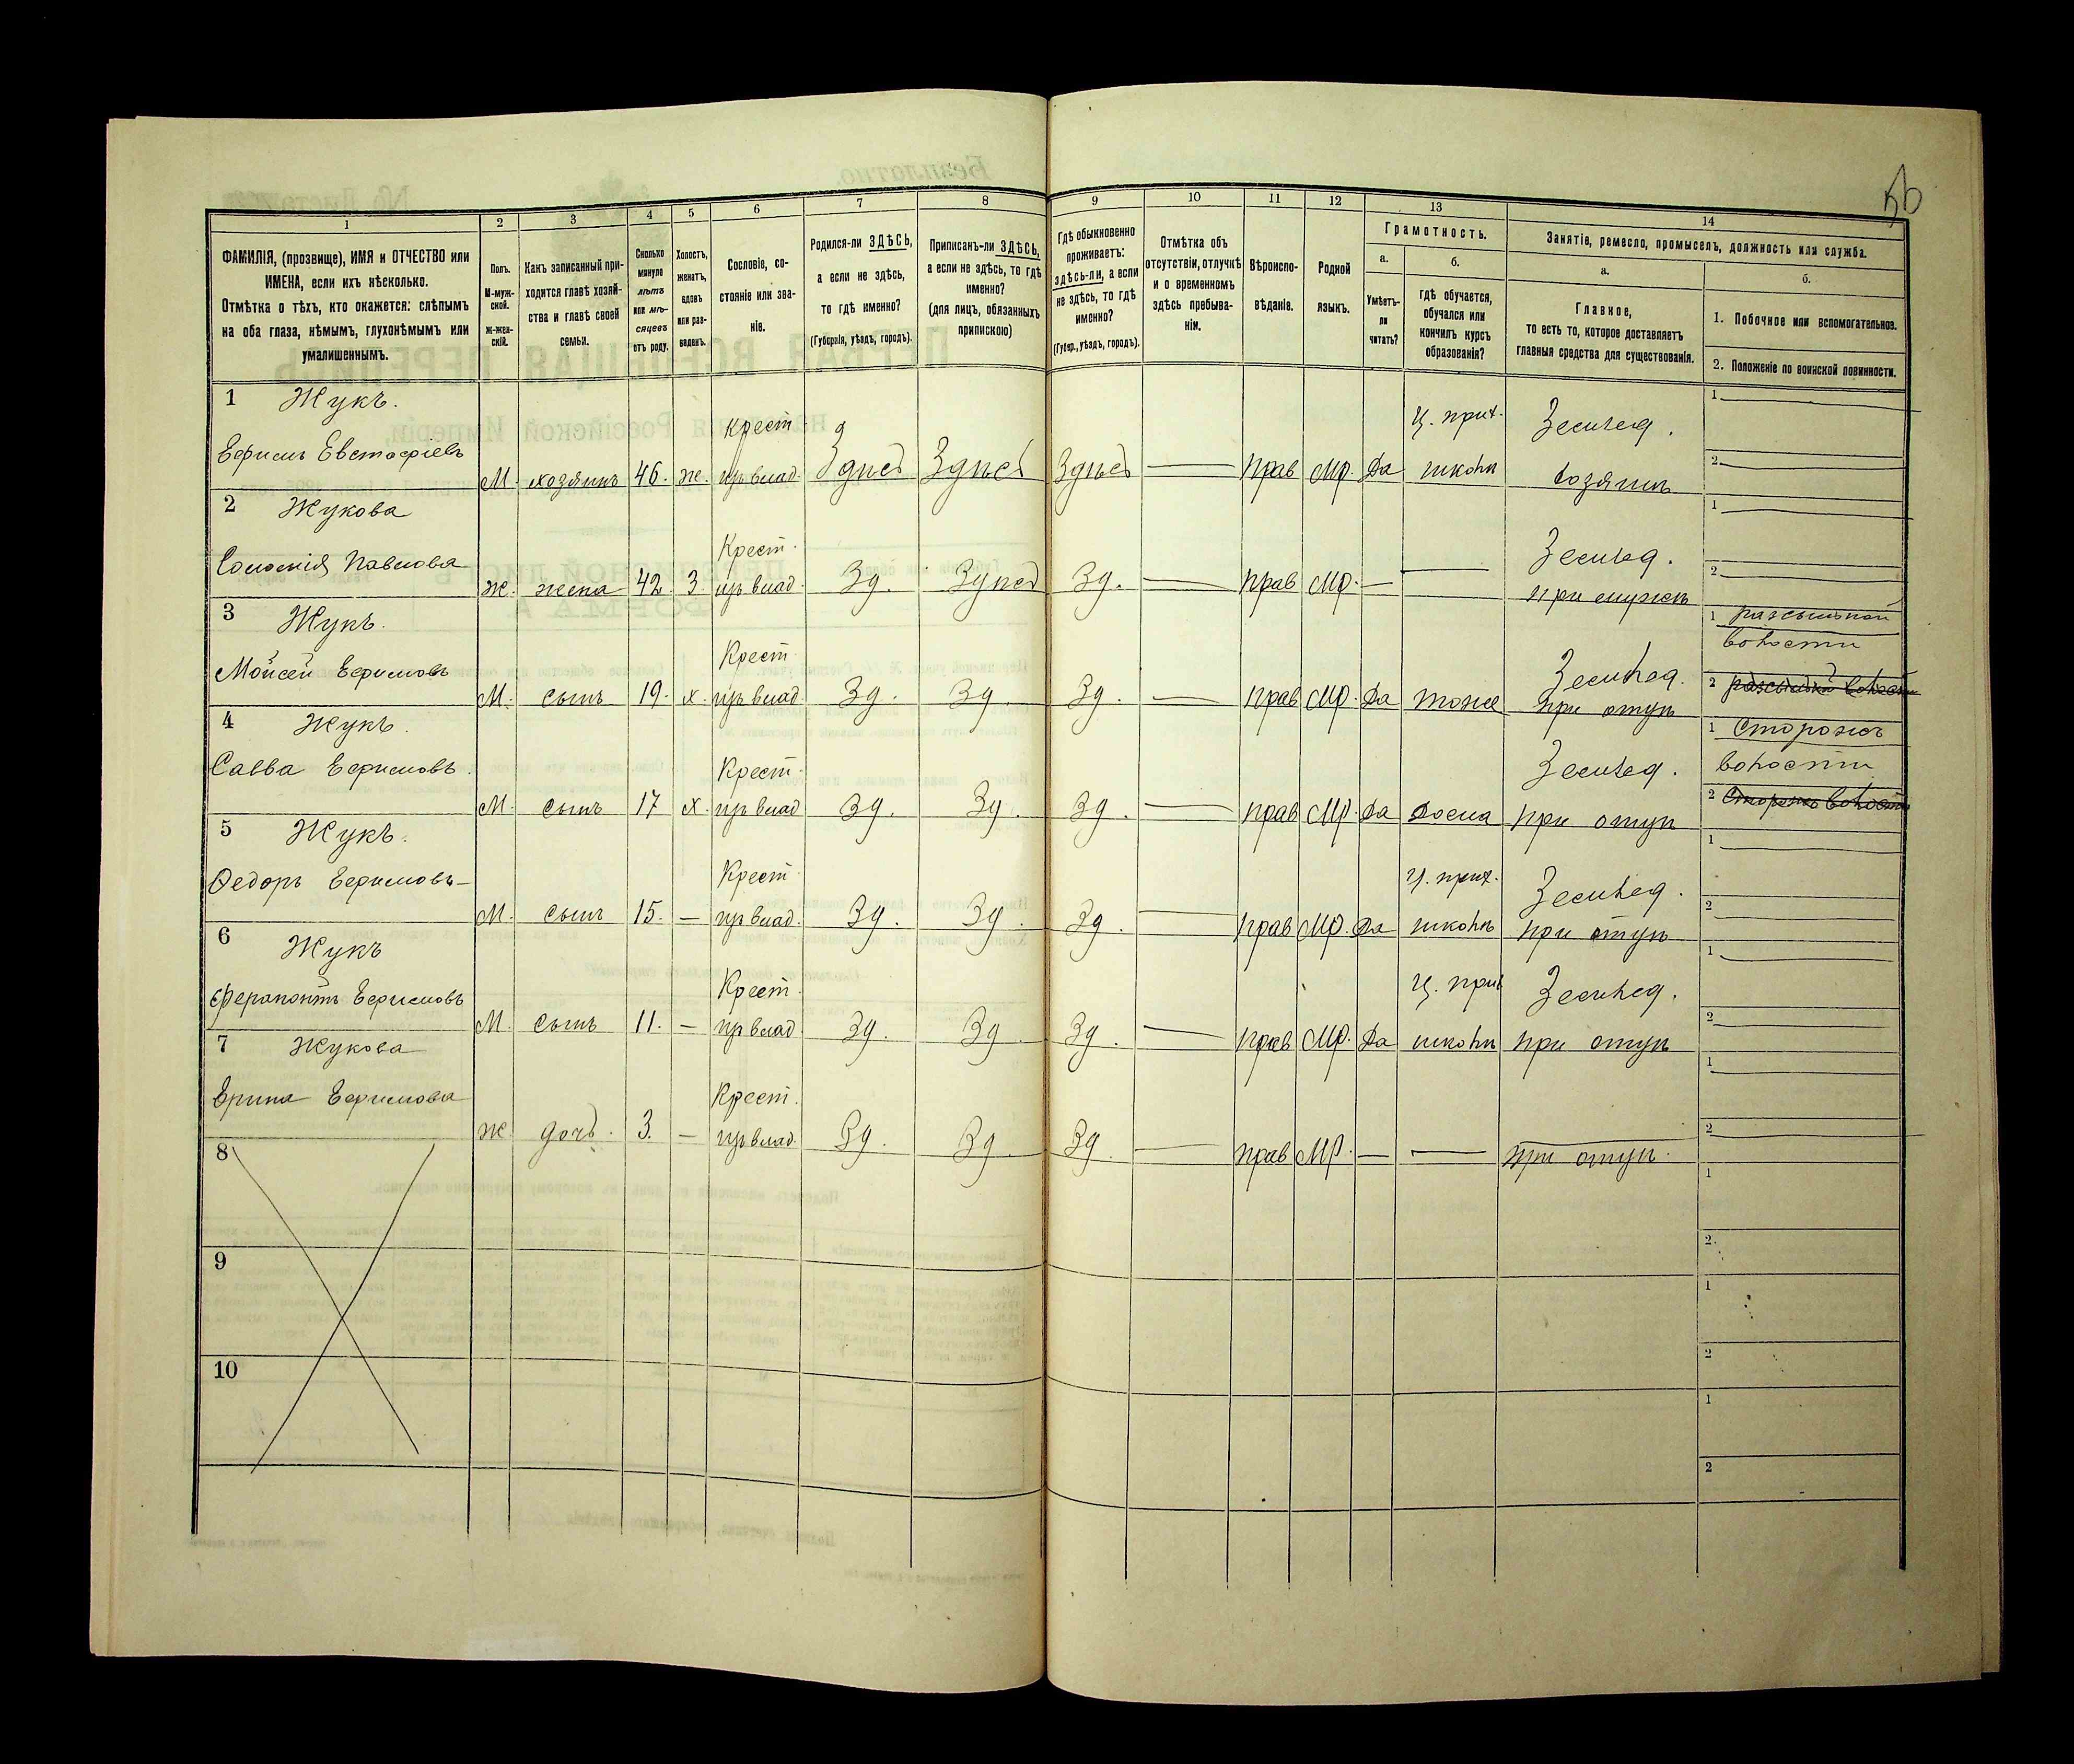 56
1 2 3 4 5 6 7 8 9 10 11 12 13 14
ФАМИЛІЯ, (прозвище), ИМЯ и ОТЧЕСТВО или
ИМЕНА, если ихъ нѣсколько.
Отмѣтка о тѣхъ, кто окажется: слѣпымъ
на оба глаза, нѣмымъ, глухонѣмымъ или
умалишеннымъ.
Полъ.
М-муж-
ской.
Ж-жен-
скій.
Какъ записанный при-
ходится главѣ хозяй-
ства и главѣ своей
семьи.
Сколько
минуло
лѣтъ
или мѣ-
сяцевъ
отъ роду.
Холостъ,
женатъ,
вдовъ
или раз-
веденъ.
Сословіе, со-
стояніе или зва-
ніе.
Родился-ли ЗДѢСЬ,
а если не здѣсь,
то гдѣ именно?
(Губернія, уѣздъ, городъ).
Приписанъ-ли ЗДѢСЬ,
а если не здѣсь, то гдѣ
именно?
(для лицъ, обязанныхъ
припискою)
Гдѣ обыкновенно
проживаетъ:
здѣсь-ли, а если
не здѣсь, то гдѣ
именно?
(Губер., уѣздъ, городъ).
Отмѣтка объ
отсутствіи, отлучкѣ
и о временномъ
здѣсь пребыва-
ніи.
Вѣроиспо-
вѣданіе.
Родной
языкъ.
Грамотность.
а.
Умѣетъ-
ли
читать?
б.
гдѣ обучается,
обучался или
кончилъ курсъ
образованія?
Занятіе, ремесло, промыселъ, должность или служба.
а.
Главное,
то есть то, которое доставляетъ
главныя средства для существованія.
б.
1. Побочное или вспомогательное.
2. Положеніе по воинской повинности.
1 Жукъ. Крест ц. прих. Землед. 1
Ефимъ Евстафіевъ М. хозяинъ 46. ж. изъ влад. Здѣсь Здѣсь Здѣсь — Прав Мр. Да школи хозяинъ 2
2 Жукова Крест. Землед. 1
Соломнія Павлова Ж. жена 42. З. изъ влад. Зд. Здѣсь Зд. — Прав Мр. — — При мужѣ 2
3 Жукъ. Крест Землед. 1 разсыльной
волости
Мойсей Ефимовъ М. сынъ 19. х. изъ влад. Зд. Зд. Зд. — Прав Мр. Да тоже при отцѣ 2 разсыльный волости
4 Жукъ. Крест. Землед. 1 Сторожъ
волости
Савва Ефимовъ. М. сынъ 17 х. изъ влад Зд. Зд. Зд. — Прав Мр. Да дома при отцѣ 2 Сторожъ волости
5 Жукъ. Крест ц. прих. Землед. 1
Ѳедоръ Ефимовъ М. сынъ 15. — изъ влад. Зд. Зд. Зд. — Прав Мр. Да школѣ при отцѣ 2
6 Жукъ Крест. ц. прих Землед. 1
Ферапонтъ Ефимовъ М. сынъ 11. — изъ влад. Зд. Зд. Зд. — Прав Мр. Да школи при отцѣ 2
7 Жукова Крест. 1
Ерина Ефимова Ж дочь. 3. — изъ влад. Зд. Зд. Зд. — Прав Мр. — — при отцѣ. 2
8 1
2
9 1
2
10 1
2